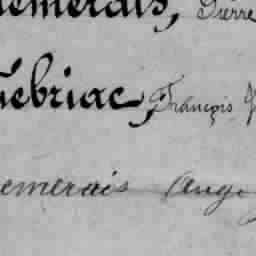 emerais, Pierre
ébriac, François
emerais Ange